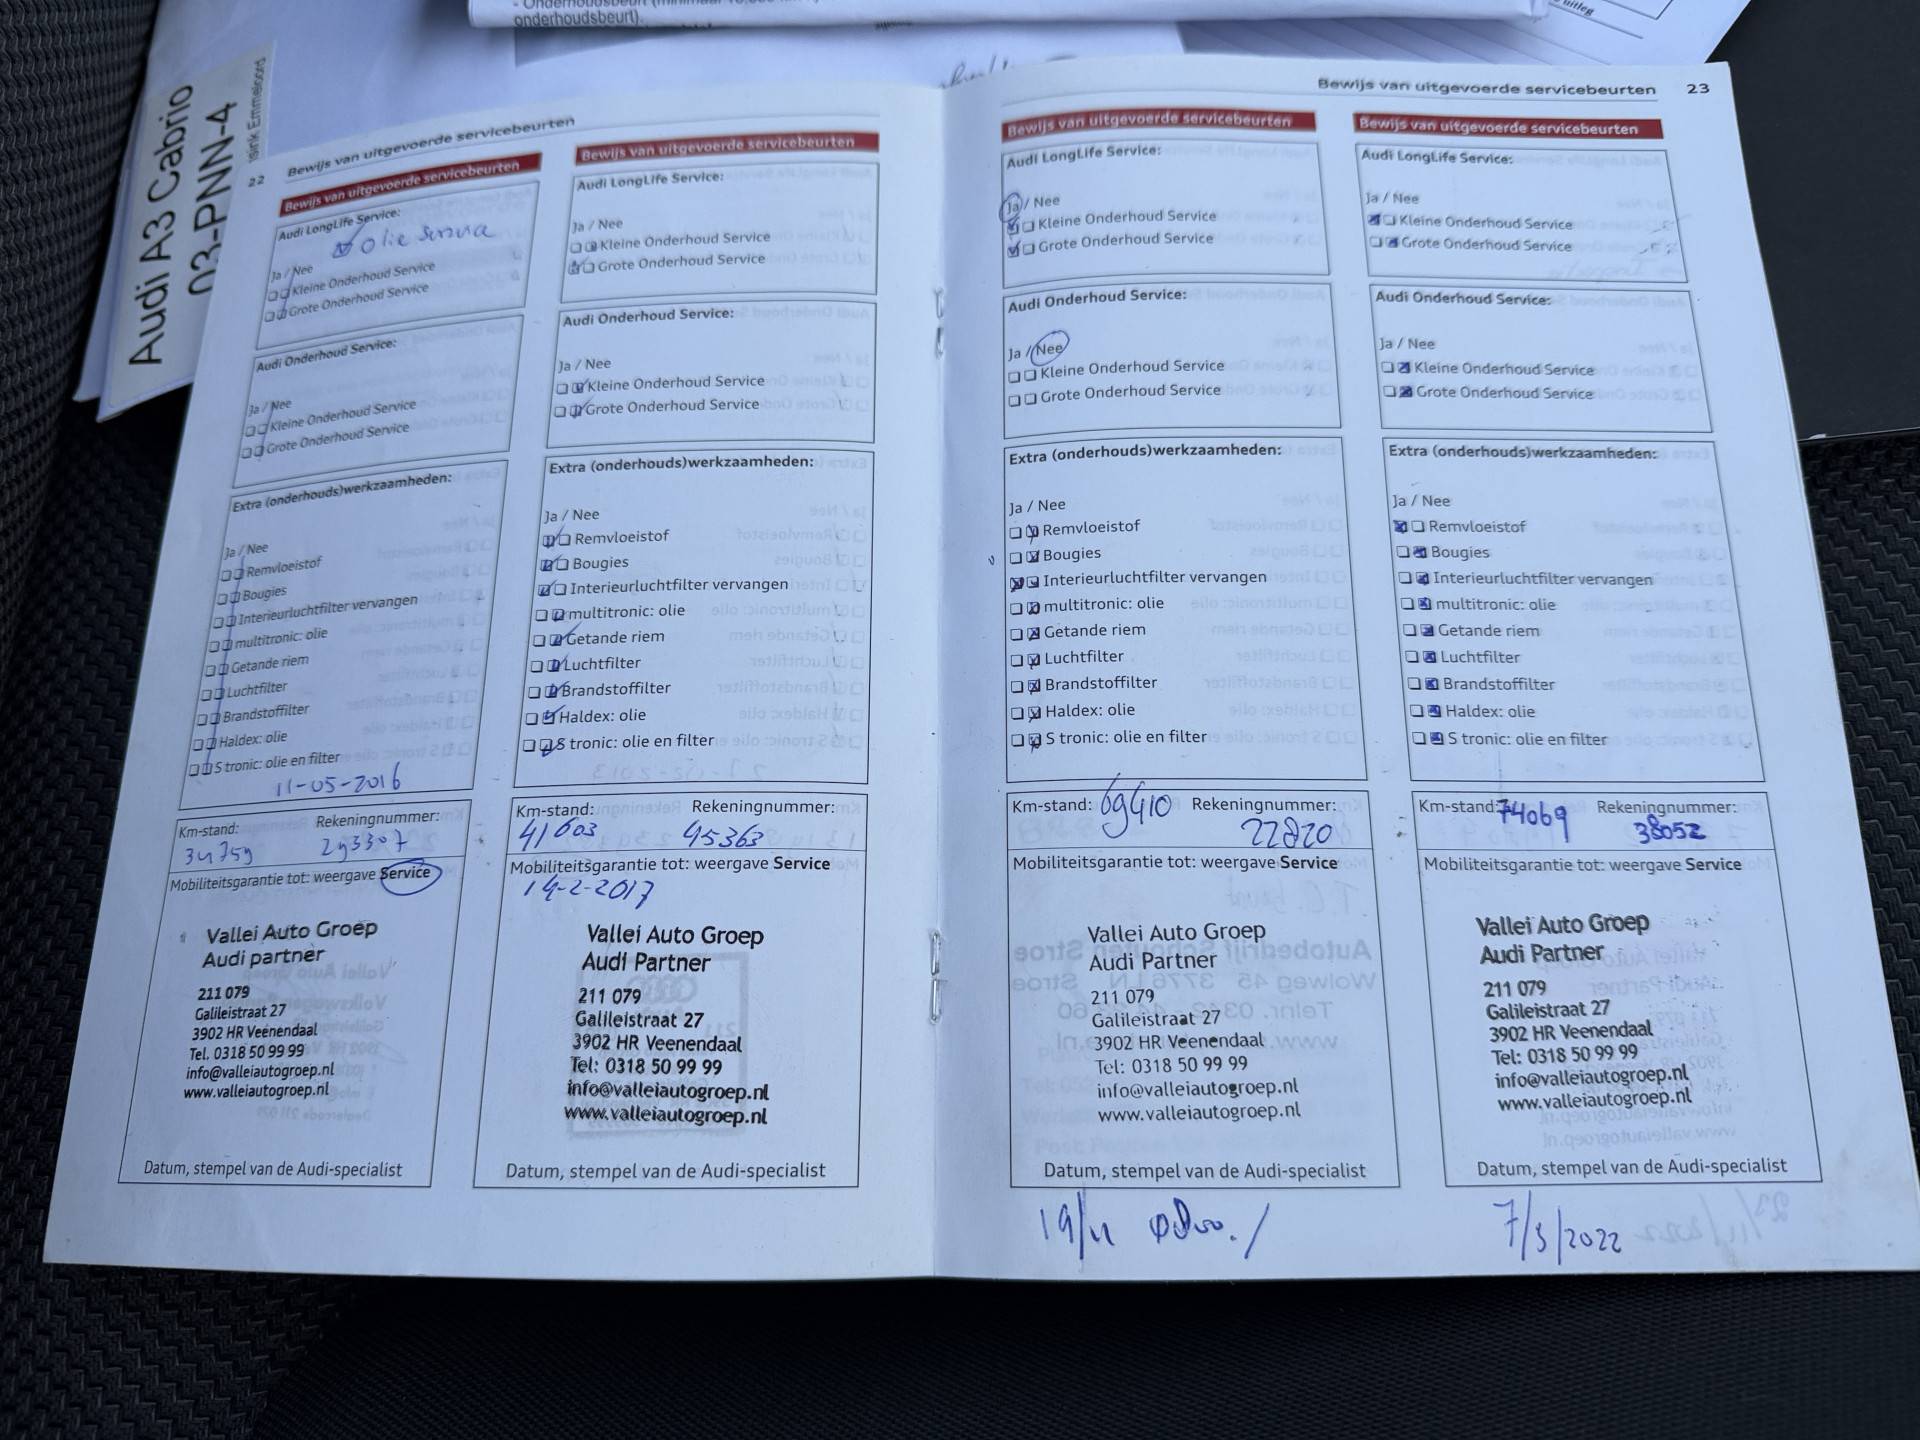 onderhoudsbeurt).
uitleg
Audi A3 Cabrio
03-PNN-4
Emmeloord
22 Bewijs van uitgevoerde servicebeurten
Bewijs van uitgevoerde servicebeurten
Audi LongLife Service:
Olie service
Ja / Nee
Kleine Onderhoud Service
Grote Onderhoud Service
Audi Onderhoud Service:
Ja / Nee
Kleine Onderhoud Service
Grote Onderhoud Service
Extra (onderhouds)werkzaamheden:
Ja / Nee
Remvloeistof
Bougies
Interieurluchtfilter vervangen
multitronic: olie
Getande riem
Luchtfilter
Brandstoffilter
Haldex: olie
S tronic: olie en filter
11-05-2016
Km-stand: Rekeningnummer:
34759 293307
Mobiliteitsgarantie tot: weergave Service
Vallei Auto Groep
Audi partner
211 079
Galileistraat 27
3902 HR Veenendaal
Tel. 0318 50 99 99
info@valleiautogroep.nl
www.valleiautogroep.nl
Datum, stempel van de Audi-specialist
Bewijs van uitgevoerde servicebeurten
Audi LongLife Service:
Ja / Nee
Kleine Onderhoud Service
Grote Onderhoud Service
Audi Onderhoud Service:
Ja / Nee
Kleine Onderhoud Service
Grote Onderhoud Service
Extra (onderhouds)werkzaamheden:
Ja / Nee
Remvloeistof
Bougies
Interieurluchtfilter vervangen
multitronic: olie
Getande riem
Luchtfilter
Brandstoffilter
Haldex: olie
S tronic: olie en filter
Km-stand: Rekeningnummer:
41603 45363
Mobiliteitsgarantie tot: weergave Service
14-2-2017
Vallei Auto Groep
Audi Partner
211 079
Galileistraat 27
3902 HR Veenendaal
Tel: 0318 50 99 99
info@valleiautogroep.nl
www.valleiautogroep.nl
Datum, stempel van de Audi-specialist
Bewijs van uitgevoerde servicebeurten 23
Bewijs van uitgevoerde servicebeurten
Audi LongLife Service:
Ja / Nee
Kleine Onderhoud Service
Grote Onderhoud Service
Audi Onderhoud Service:
Ja / Nee
Kleine Onderhoud Service
Grote Onderhoud Service
Extra (onderhouds)werkzaamheden:
Ja / Nee
Remvloeistof
Bougies
Interieurluchtfilter vervangen
multitronic: olie
Getande riem
Luchtfilter
Brandstoffilter
Haldex: olie
S tronic: olie en filter
Km-stand: 69410 Rekeningnummer:
22820
Mobiliteitsgarantie tot: weergave Service
Vallei Auto Groep
Audi Partner
211 079
Galileistraat 27
3902 HR Veenendaal
Tel: 0318 50 99 99
info@valleiautogroep.nl
www.valleiautogroep.nl
Datum, stempel van de Audi-specialist
19/11
Bewijs van uitgevoerde servicebeurten
Audi LongLife Service:
Ja / Nee
Kleine Onderhoud Service
Grote Onderhoud Service
Audi Onderhoud Service:
Ja / Nee
Kleine Onderhoud Service
Grote Onderhoud Service
Extra (onderhouds)werkzaamheden:
Ja / Nee
Remvloeistof
Bougies
Interieurluchtfilter vervangen
multitronic: olie
Getande riem
Luchtfilter
Brandstoffilter
Haldex: olie
S tronic: olie en filter
Km-stand: 74069 Rekeningnummer:
38052
Mobiliteitsgarantie tot: weergave Service
Vallei Auto Groep
Audi Partner
211 079
Galileistraat 27
3902 HR Veenendaal
Tel: 0318 50 99 99
info@valleiautogroep.nl
www.valleiautogroep.nl
Datum, stempel van de Audi-specialist
7/3/2022